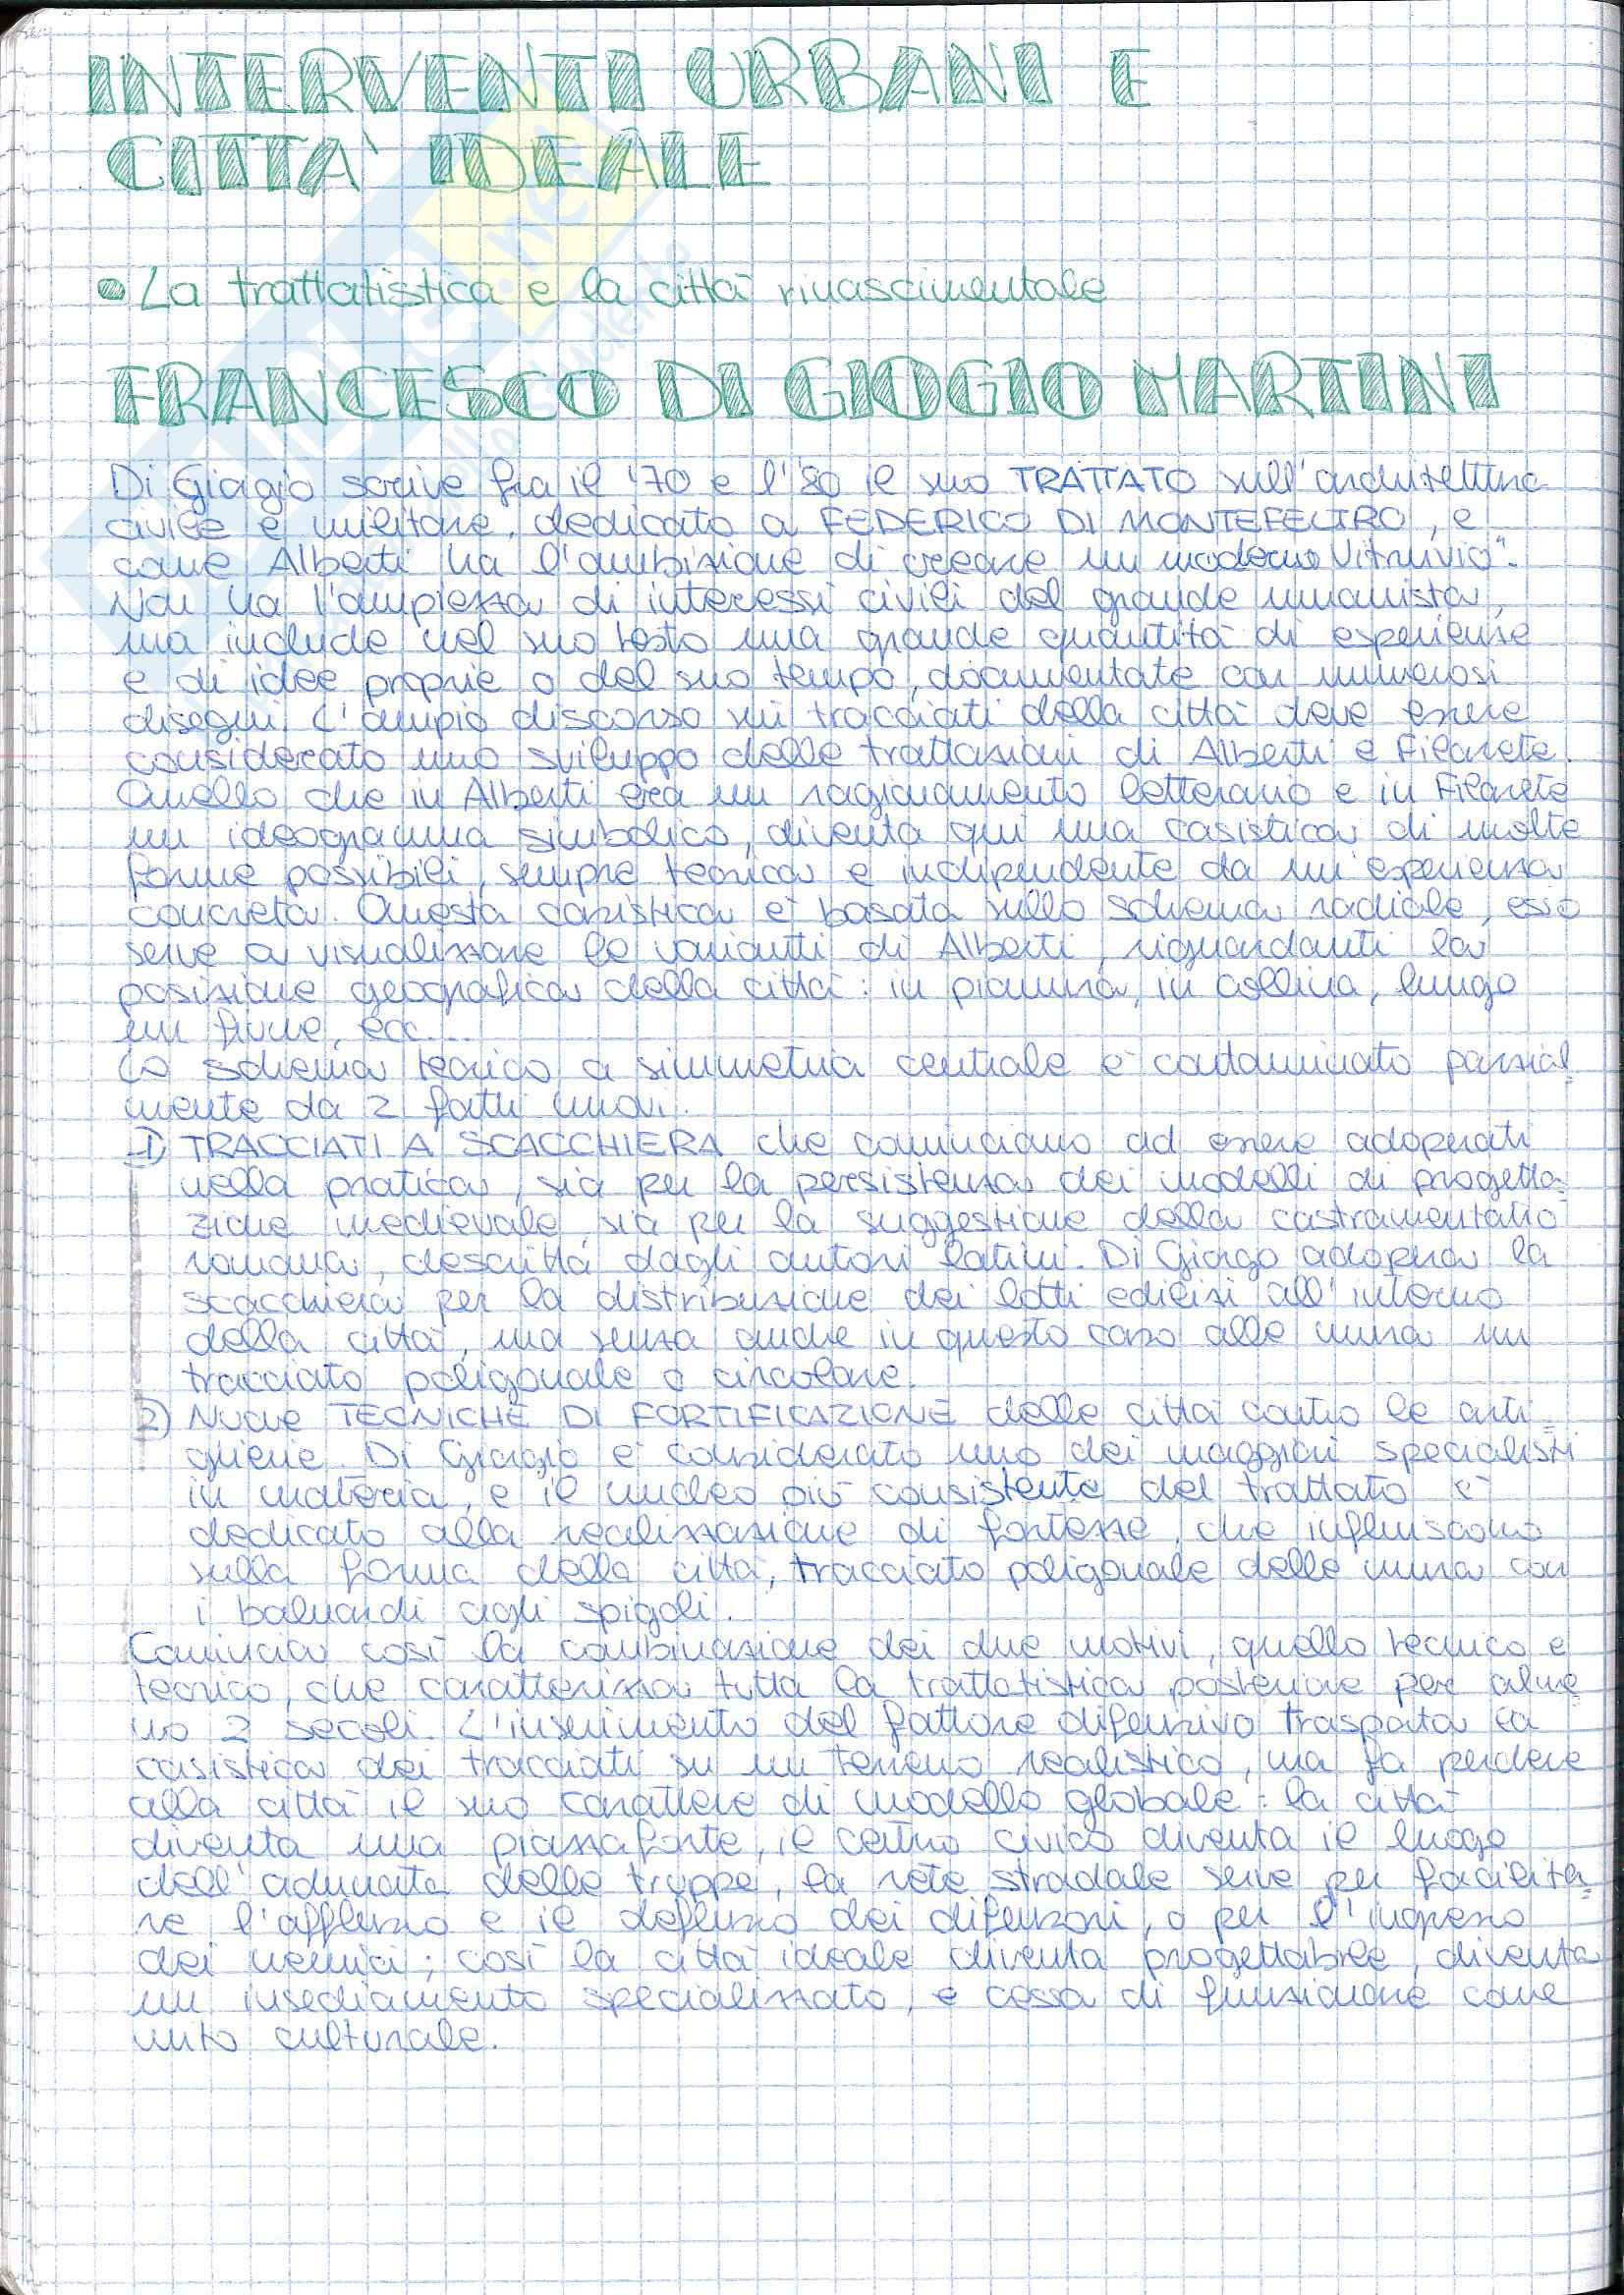 INTERVENTI URBANI E
CITTA' IDEALE
La trattatistica e la città rinascimentale
FRANCESCO DI GIOGIO MARTINI
Di Giogio scrive fra il '70 e l'80 il suo TRATTATO sull'architettura
civile e militare, dedicato a FEDERICO DI MONTEFELTRO, e
come Alberti ha l'ambizione di creare un moderno Vitruvio".
Non ha l'ampiezza di interessi civili del grande umanista,
ma include nel suo testo una grande quantità di esperienze
e di idee proprie o del suo tempo, documentate con numerosi
disegni. L'ampio discorso sui tracciati della città deve essere
considerato uno sviluppo delle trattazioni di Alberti e Filarete.
Quello che in Alberti era un ragionamento letterario e in Filarete
un ideogramma simbolico, diventa qui una casistica di molte
forme possibili, sempre teorica e indipendente da un'esperienza
concreta. Questa casistica è basata sullo schema radiale, esso
serve a visualizzare le varianti di Alberti, riguardanti la
posizione geografica della città: in pianura, in collina, lungo
un fiume, ecc...
Lo schema teorico a simmetria centrale è contaminato parzial
mente da 2 fatti nuovi:
1) TRACCIATI A SCACCHIERA che cominciano ad essere adoperati
nella pratica, sia per la persistenza dei modelli di progetta-
zione medievale, sia per la suggestione della castramentatio
romana, descritta dagli autori latini. Di Giorgo adopera la
scacchiera per la distribuzione dei lotti edilizi all'interno
della città, ma senza anche in questo caso alle mura un
tracciato poligonale o circolare.
2) Nuove TECNICHE DI FORTIFICAZIONE delle città contro le arti-
glierie. Di Giorgio è considerato uno dei maggiori specialisti
in materia, e il nucleo più consistente del trattato è
dedicato alla realizzazione di fortezze, che influiscono
sulla forma della città, tracciato poligonale delle mura con
i baluardi agli spigoli.
Comincia così la combinazione dei due motivi, quello tecnico e
teorico, che caratterizza tutta la trattatistica posteriore per alme
no 2 secoli. L'inserimento del fattore difensivo trasporta la
casistica dei tracciati su un terreno realistico, ma fa perdere
alla città il suo carattere di modello globale: la città
diventa una piazzaforte, il centro civico diventa il luogo
dell'adunata delle truppe, la rete stradale serve per facilita-
re l'afflusso e il deflusso dei difensori, o per l'ingresso
dei nemici; così la città ideale diventa progettabile, diventa
un insediamento specializzato, e cessa di funzionare come
mito culturale.